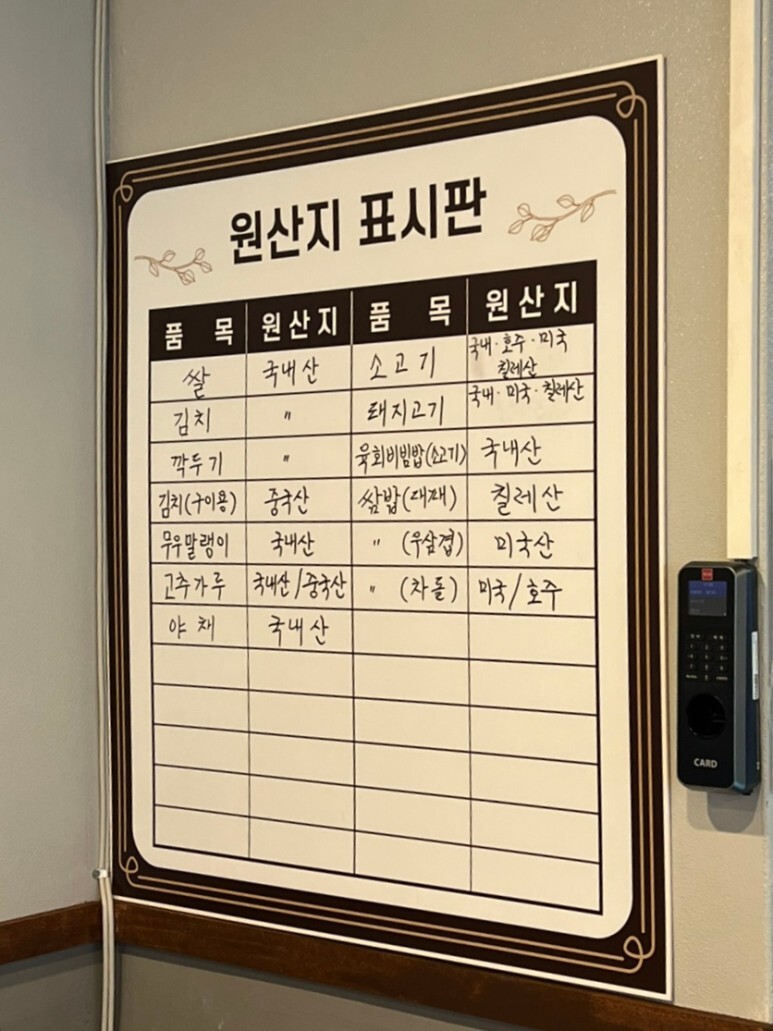 원산지 표시판
품 목 원산지 품 목 원산지
쌀 국내산 소고기 국내·호주·미국 칠레산
김치 〃 돼지고기 국내·미국·칠레산
깍두기 〃 육회비빔밥(소고기) 국내산
김치(구이용) 중국산 쌈밥(대패) 칠레산
무우말랭이 국내산 〃 (우삼겹) 미국산
고추가루 국내산/중국산 〃 (차돌) 미국/호주
야채 국내산
CARD